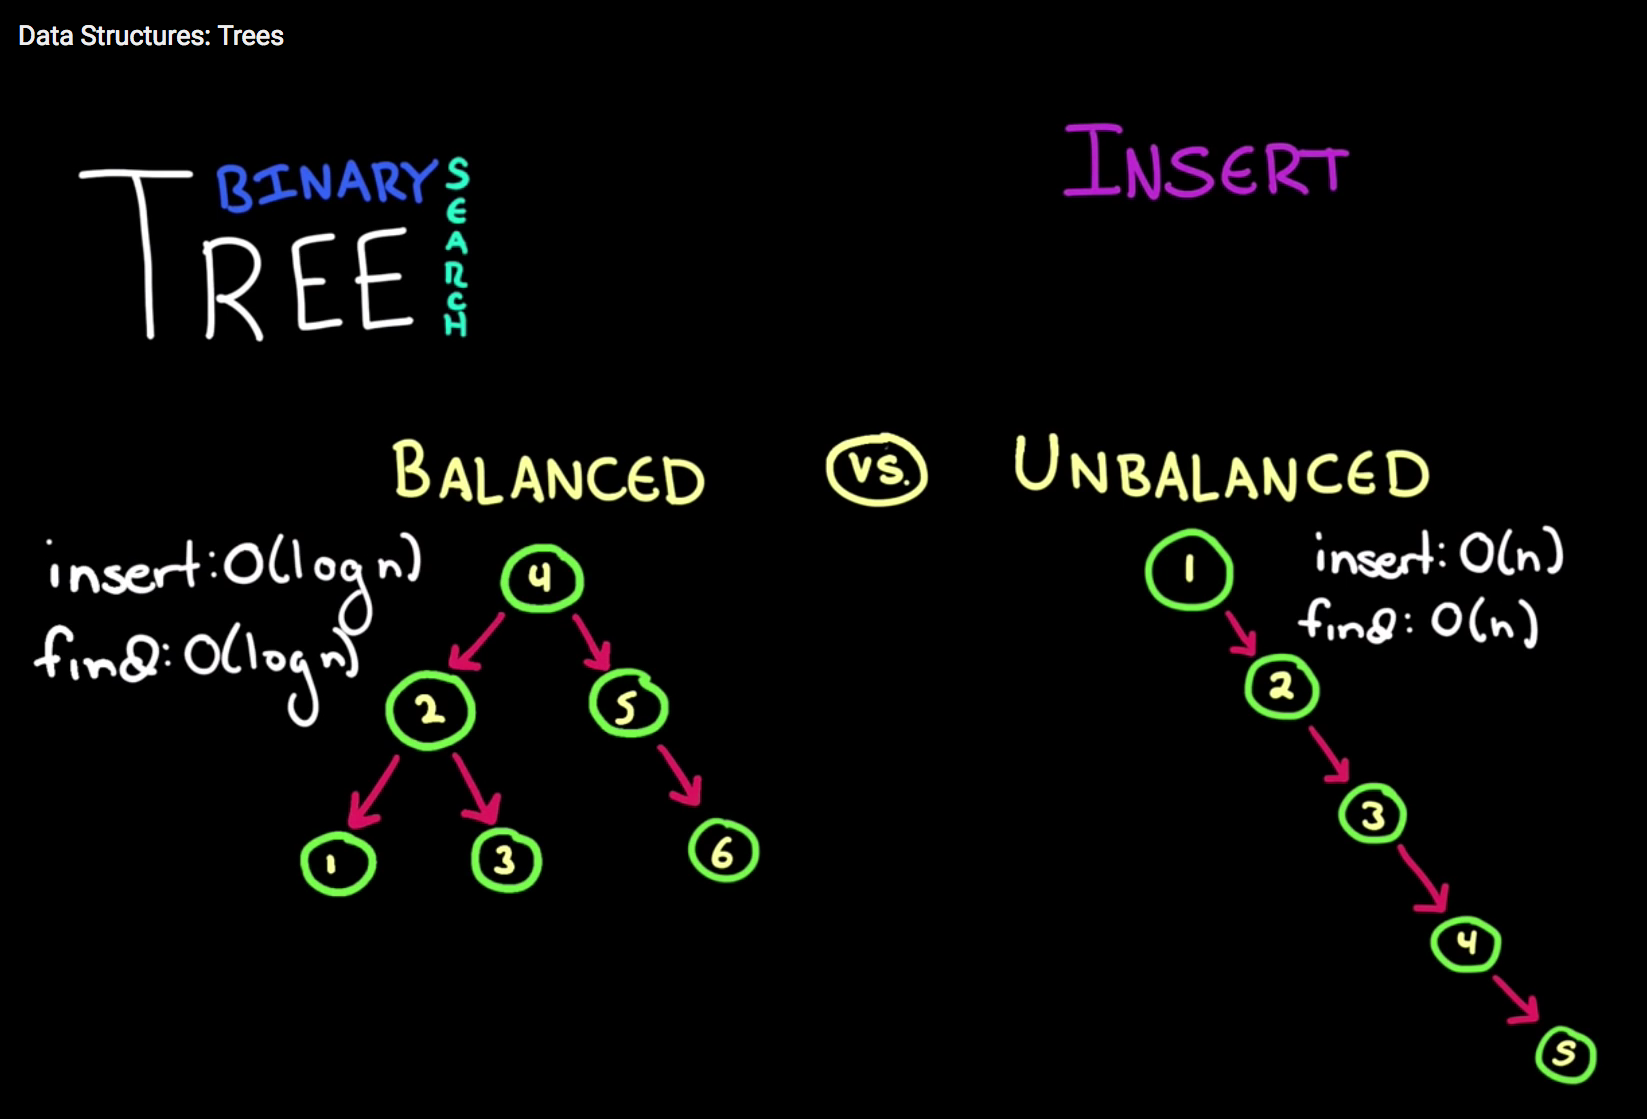 Data Structures: Trees
TREE
BINARY
SEARCH
INSERT
BALANCED
VS.
UNBALANCED
insert: O(log n)
find: O(log n)
4
2
5
1
3
6
insert: O(n)
find: O(n)
1
2
3
4
5